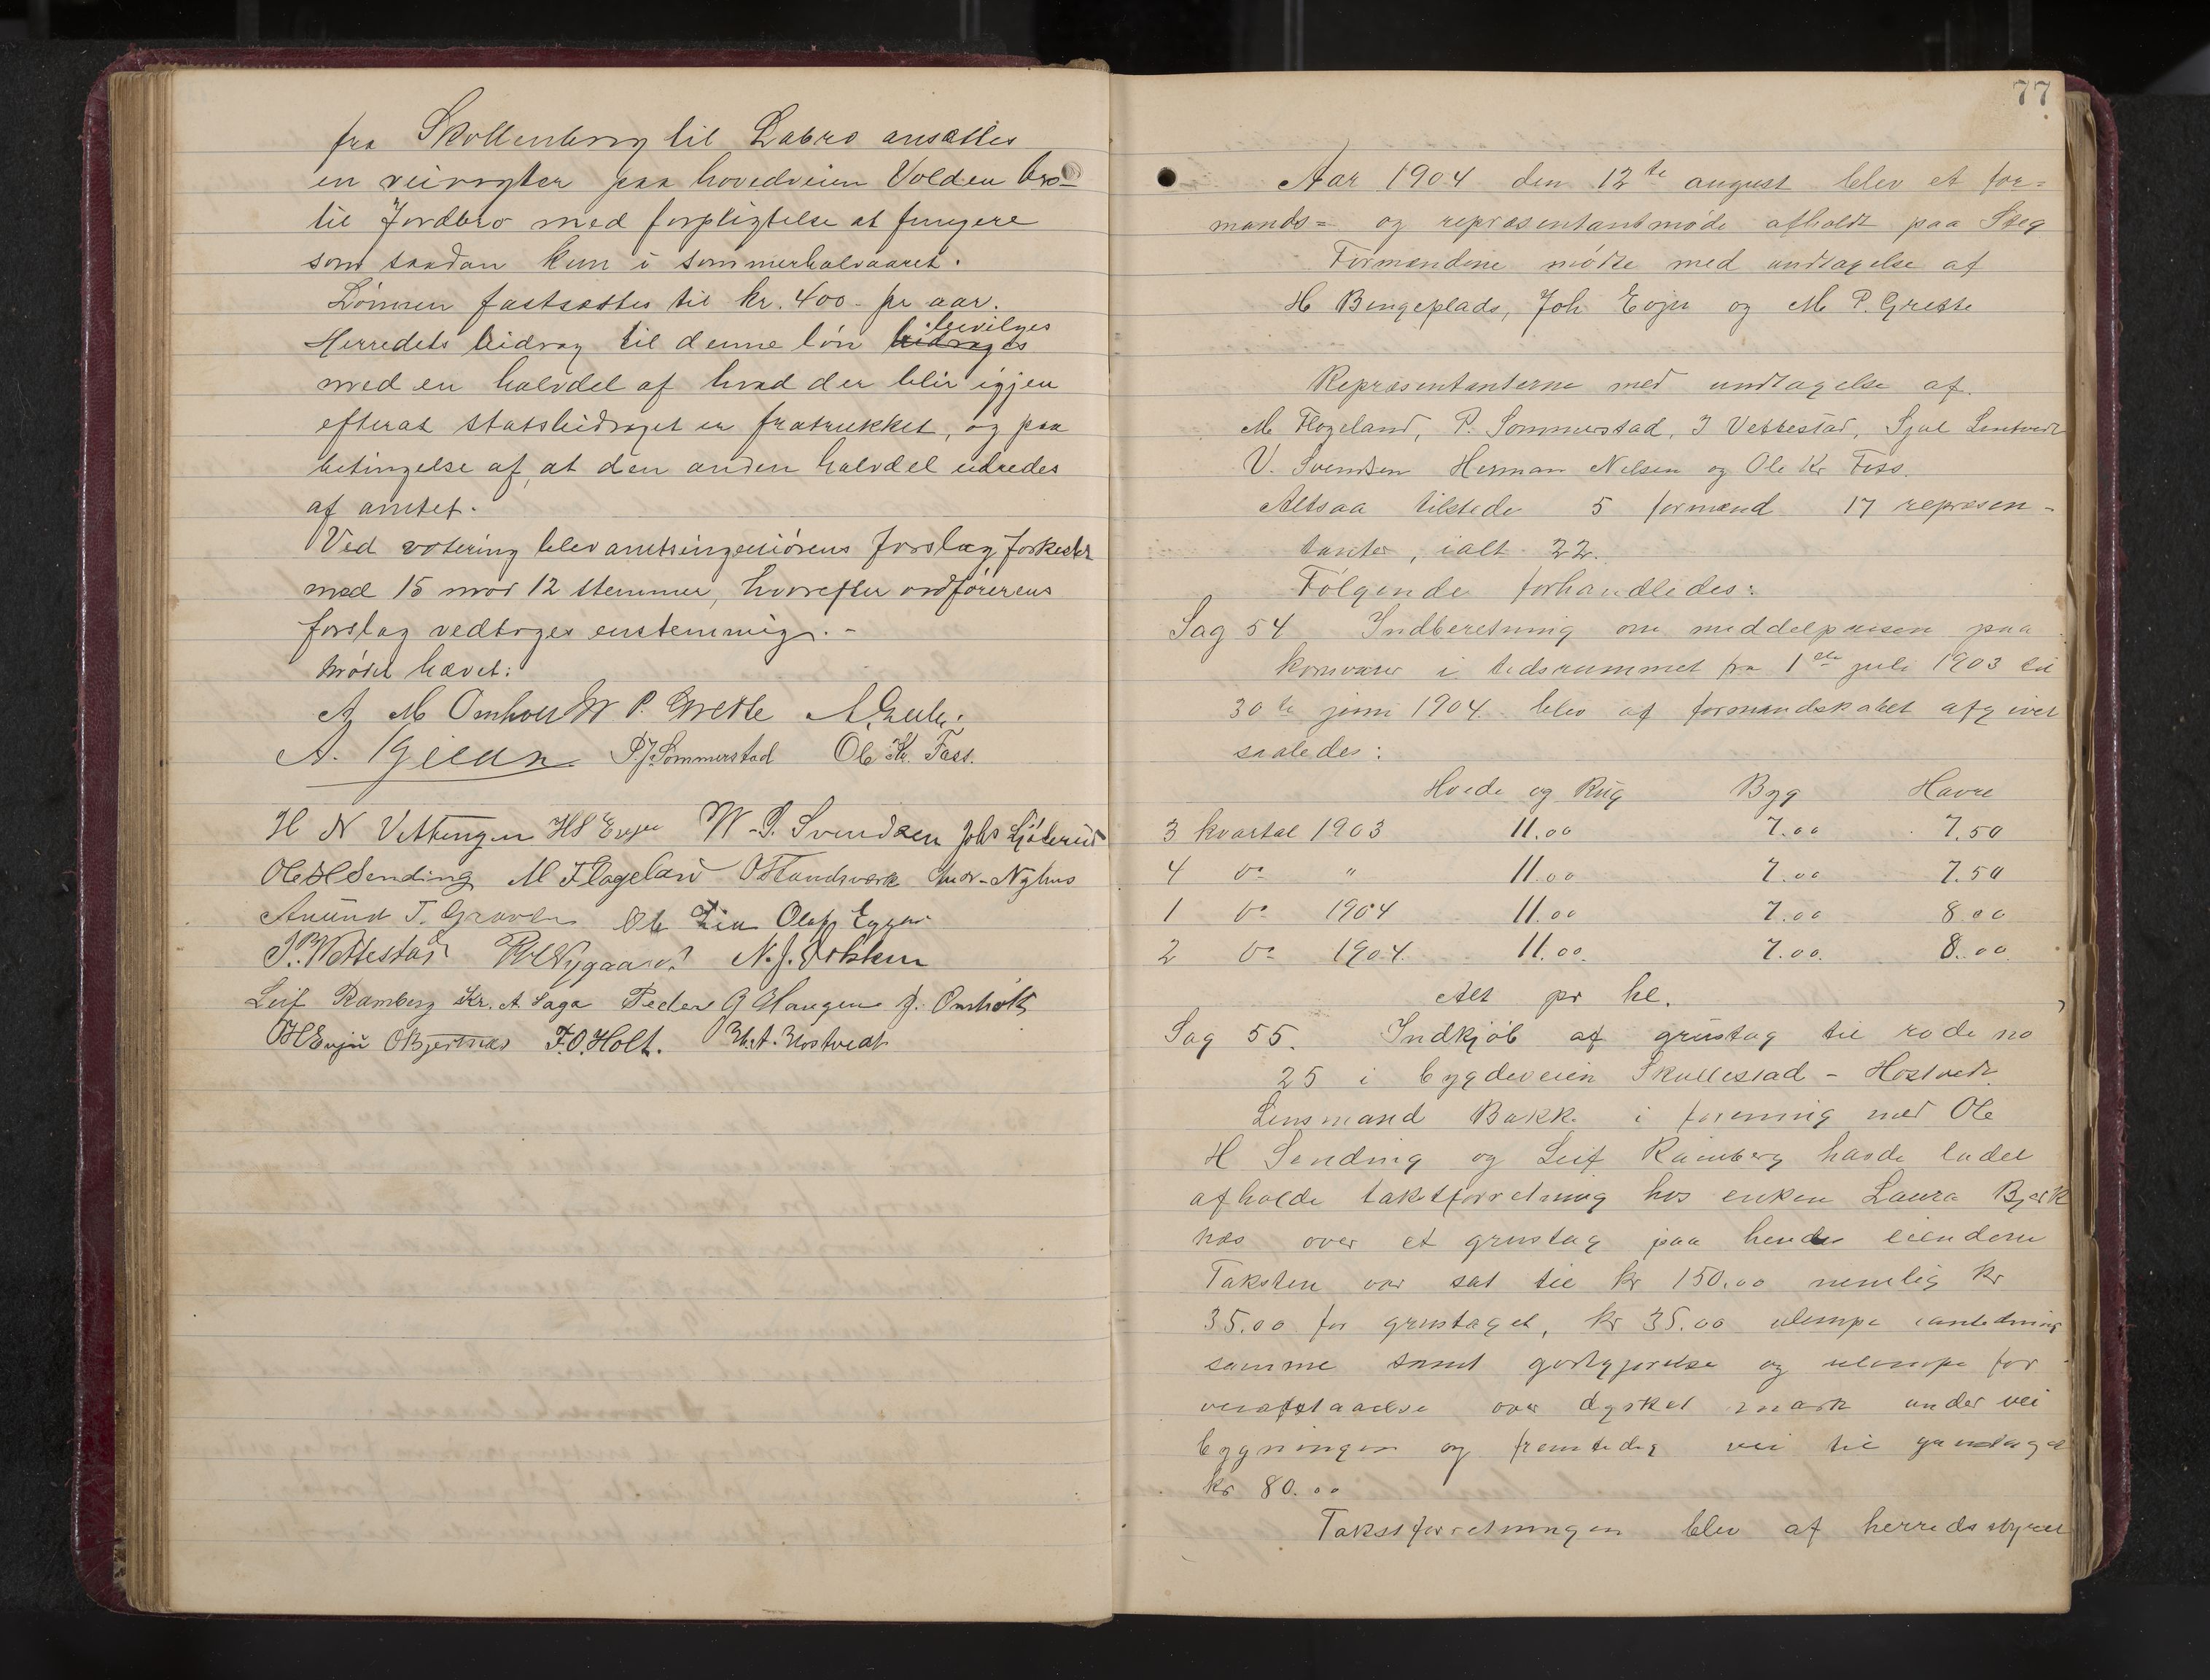 fra Skollenborg til Labro ansættes
en veivogter paa hovedveien Volden bro-
til Jordbro med forpligtelse at fungere
som saadan kun i sommerhalvaaret.
Lønnen fastsættes til kr. 400- pr aar.
bevilges
Herredets bidrag til denne løn bidrages
med en halvdel af hvad der blir igjen
efterat statsbidraget er fratrukket, og paa
betingelse af, at den anden halvdel udredes
af amtet.
Ved votering blev amtsingeniørens forslag forkastet
med 15 mod 12 stemmer, hvorefter ordførerens
forslag vedtoges enstemmig. -
Mødet hævet:
A M Omholt M P. Grette
P. J. Sommerstad Ole Kr. Foss.
H N Vittingen HS Evju W. P. Svendsen Johs
Ole H Sending M Flageland Nyhus
Amund T. Gravdn Ole Lia Olaf
Leif Ramberg Kr. A Saga Peder G Haugen J. Omholt
OH Evju F.O. Holt.
77
Aar 1904 den 12te august blev et for=
mands= og repræsentantmøde afholdt paa Steg
Formændene mødte med undtagelse af
H Bingeplads, Joh Evju og M P. Grette
Repræsentanterne med undtagelse af.
M Flageland, P. Sommerstad, J Vettestad, Sjul
V. Svendsen Herman Nelsen og Ole Kr Foss.
Altsaa tilstede 5 formænd 17 repræsen-
tanter, ialt 22.
Følgende forhandledes:
Sag 54 Indberetning om middelprisen paa
kornvarer i tidsrummet fra 1ste juli 1903 til
30te juni 1904 blev af formandskabet afgivet
saaledes:
Hvede og Rug Byg Havre
3 kvartal 1903 11.00 7.00 7.50
4 do " 11.00 7.00 7.50
1 do 1904 11.00 7.00 8.00
2 do 1904. 11.00. 7.00. 8.00
Alt pr hl.
Sag 55. Indkjøb af grustag til rode no
25 i bygdeveien Skollestad - Hostvedt
Lensmand Bakk i forening med Ole
H Sending og Leif Ramberg havde ladet
afholde takstforretning hos enken Laura Bjerk
næs over et grustag paa hendes eiendom
Taksten var sat til kr 150.00 nemlig kr
35.00 for grustaget, kr 35.00 ulempe i anledning
samme samt godtgjørelse og ulempe for
veiafstaaelse over dyrket mark under vei
bygningen og fremtidig vei til grustaget
kr 80.00
Takstforretningen blev af herredsstyret